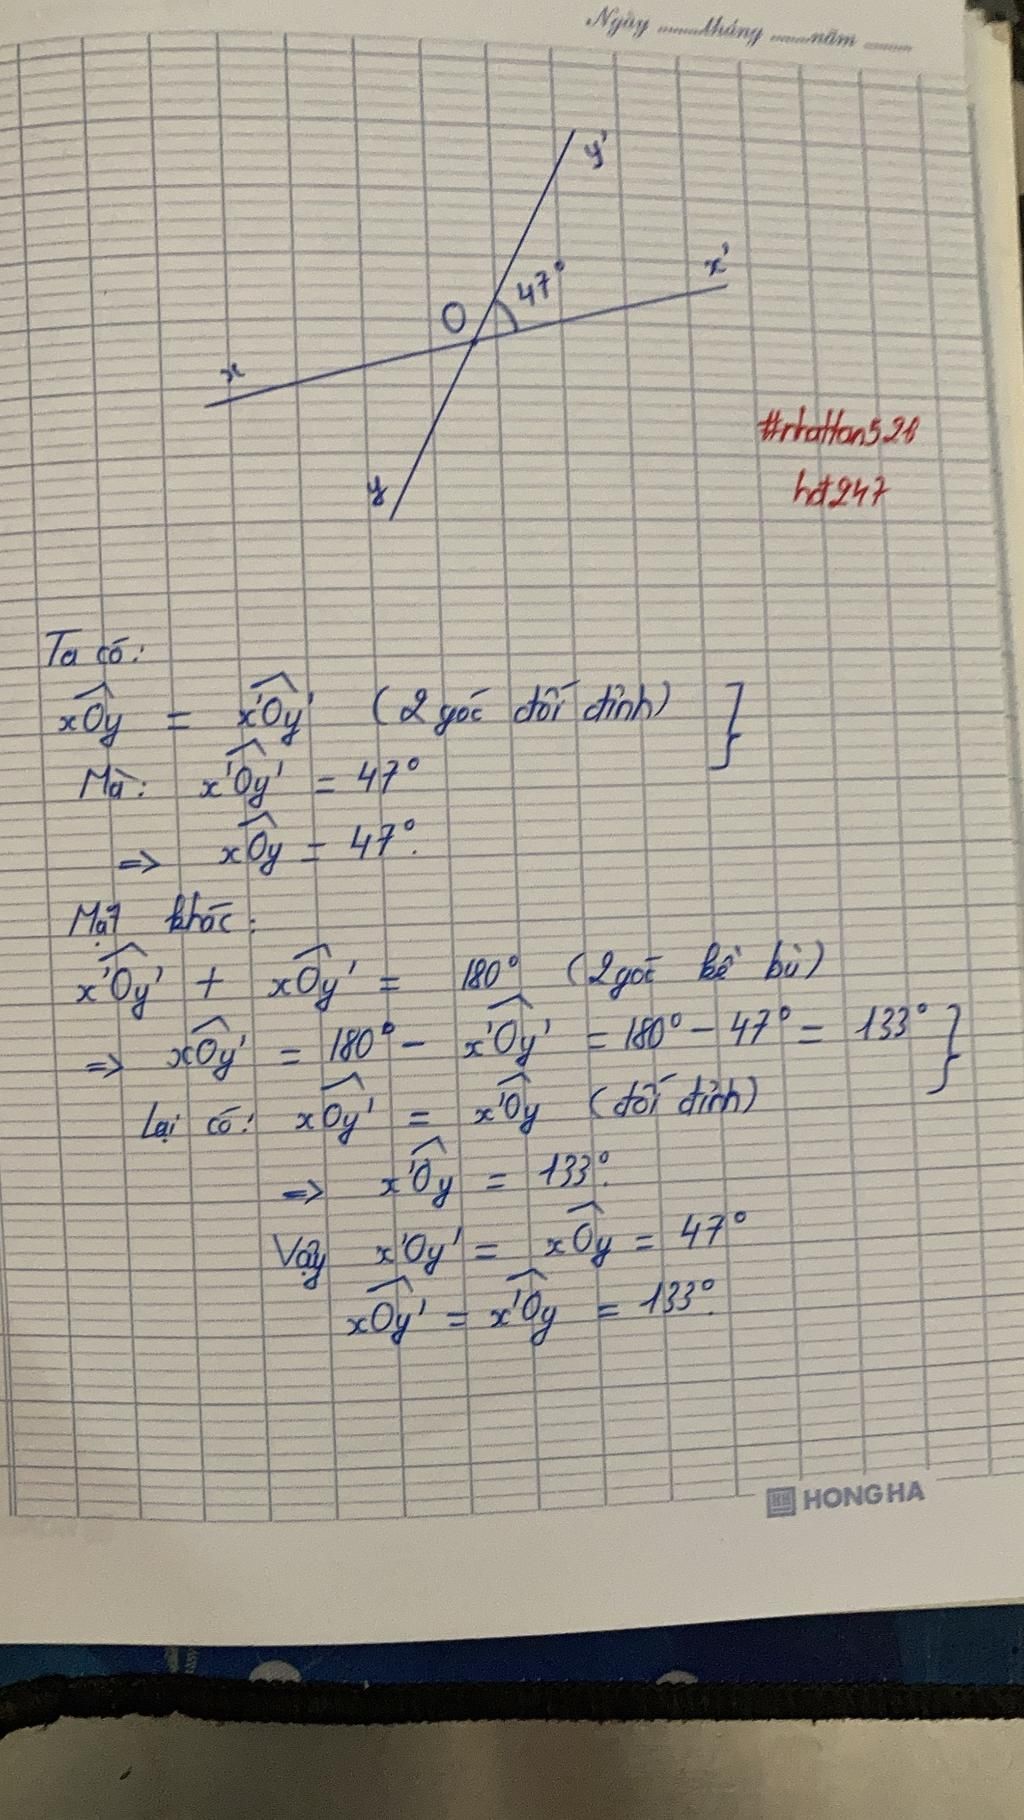 Ngày ........tháng ......năm ......
y'
x'
47°
O
x
y
#nhattan521
hd247
Ta có:
xOy = x'Oy' (2 góc đối đỉnh) }
Mà: x'Oy' = 47°
=> xOy = 47°.
Mặt khác:
x'Oy' + xOy' = 180° (2 góc kề bù)
=> xOy' = 180° - x'Oy' = 180° - 47° = 133° }
Lại có: xOy' = x'Oy (đối đỉnh)
=> x'Oy = 133°.
Vậy x'Oy' = xOy = 47°
xOy' = x'Oy = 133°.
HONG HA